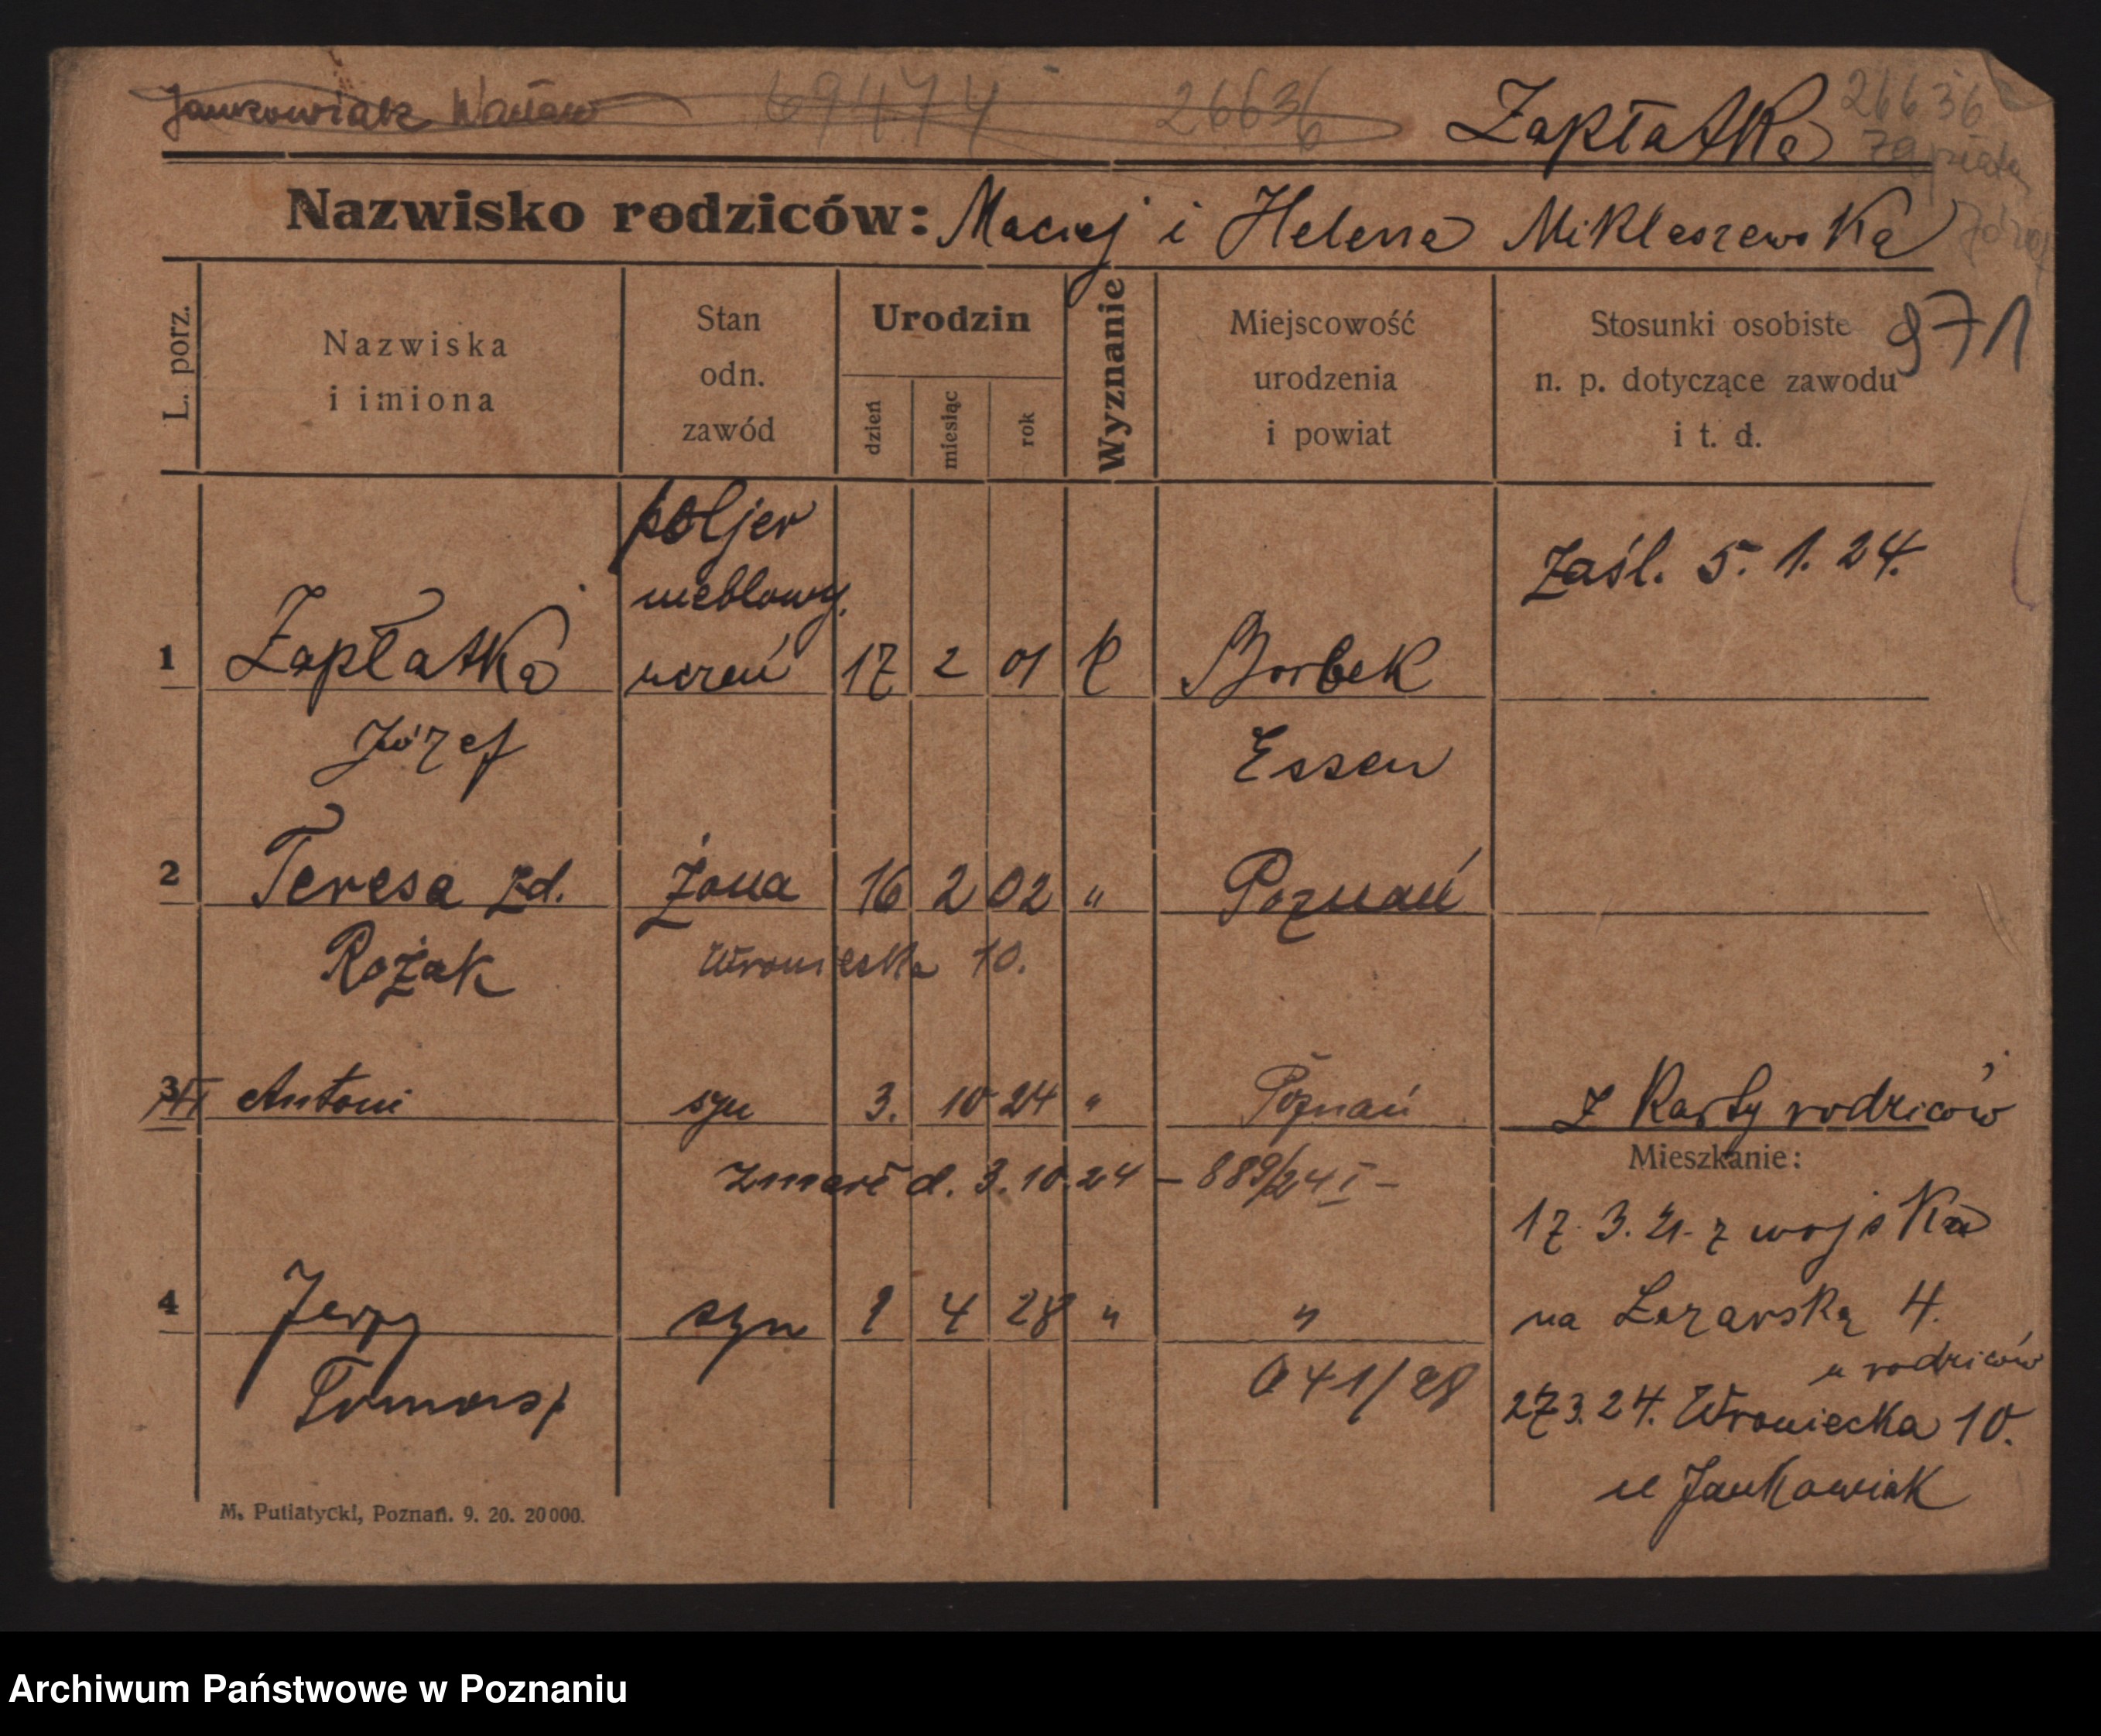 Jankowiak Wacław 69474 26636 Zapłatka 26636
Zapłatka
Józef
Nazwisko rodziców: Maciej i Helena Miklaszewska
971
L. porz.
Nazwiska
i imiona
Stan
odn.
zawód
Urodzin
dzień
miesiąc
rok
Wyznanie
Miejscowość
urodzenia
i powiat
Stosunki osobiste
n. p. dotyczące zawodu
i t. d.
poljer
meblowy
Zaśl. 5. 1. 24.
1 Zapłatka uczeń 17 2 01 k Borbek
Józef Essen
2 Teresa zd. żona 16 2 02 " Poznań
Rożak Wroniecka 10.
3 Antoni syn 3. 10 24 " Poznań Z Karty rodziców
Mieszkanie:
zmarł d. 3. 10. 24 – 889/24 I –
17. 3. 21. z wojska
4 Jerzy syn 1 4 28 " " na Łazarską 4.
u rodziców
Tomasz 041/28
27 3. 24. Wroniecka 10.
u Jankowiak
M. Putiatycki, Poznań. 9. 20. 20000.
Archiwum Państwowe w Poznaniu